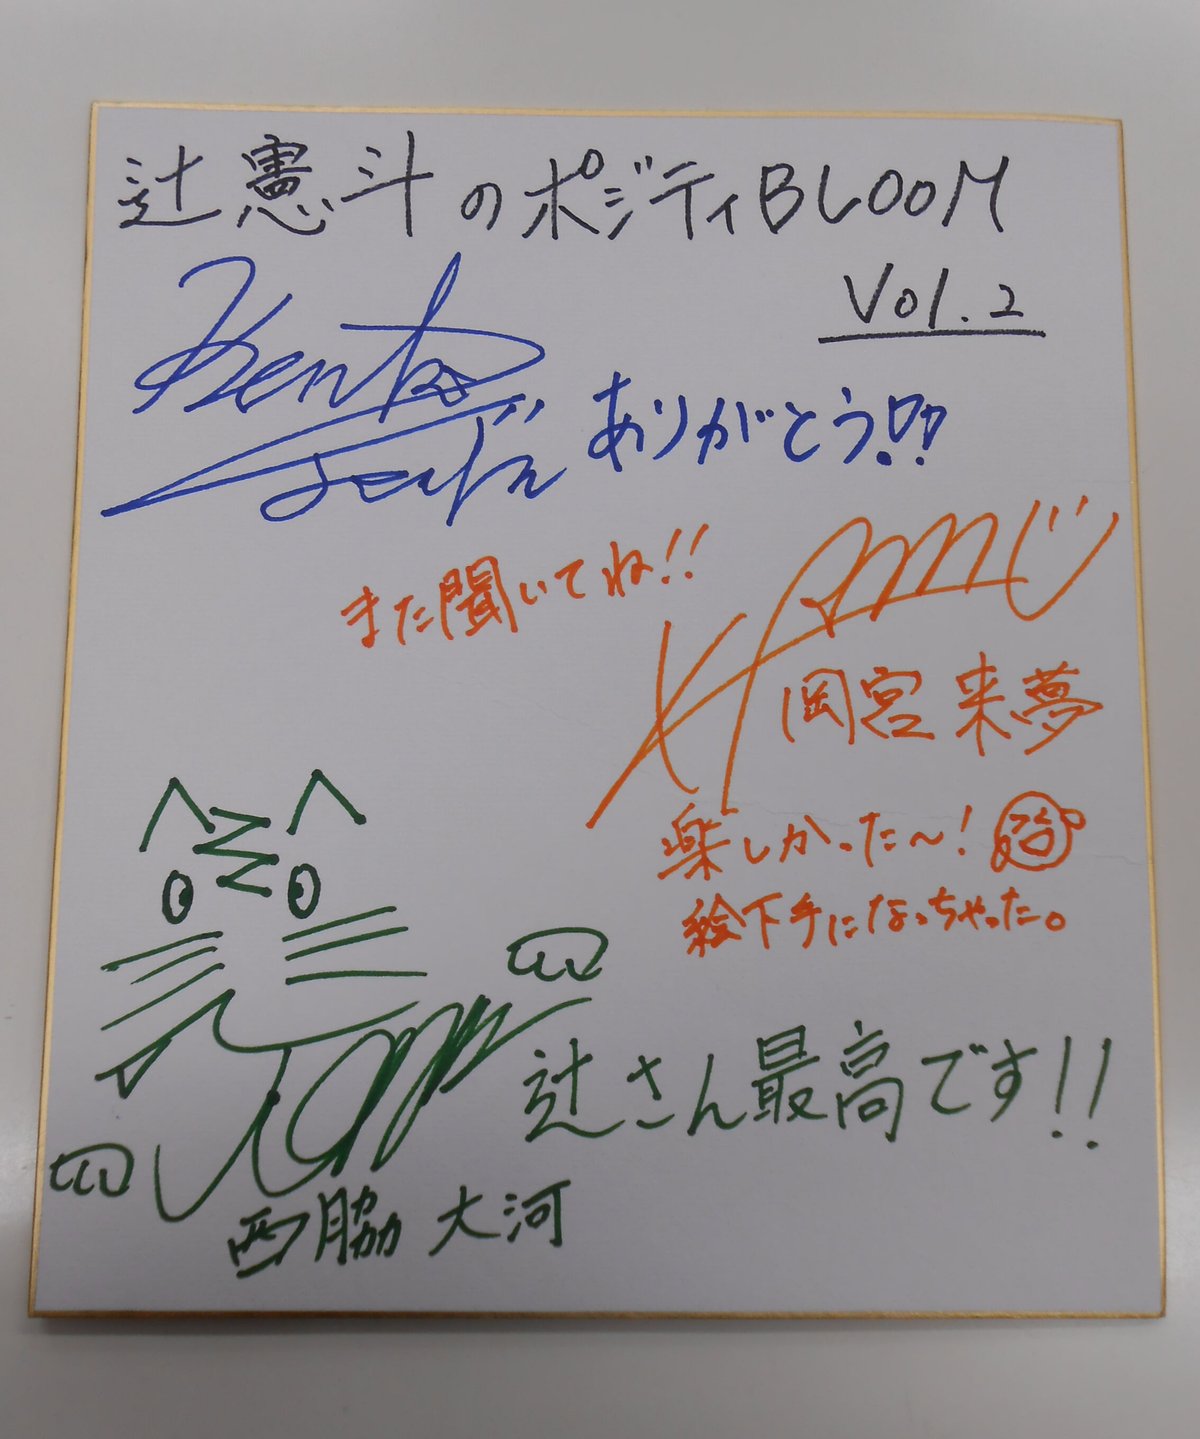 辻憲斗のポジティBLOOM
Vol.2
Kento
ありがとう!!
また聞いてね!!
岡宮 来夢
楽しかった〜!
絵下手になっちゃった。
辻さん最高です!!
西脇 大河